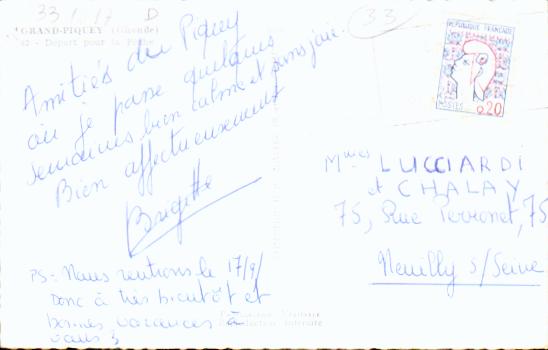 33 1.17 D
GRAND-PIQUEY (Gironde)
42 - Départ pour la
Amitiés du Piquey
où je passe quelques
semaines bien calme et sans joie.
Bien affectueusement
Brigitte
PS - Nous rentrons le 17/9/
Donc à très bientôt et
bonnes vacances à
vous 3
33
REPUBLIQUE FRANÇAISE
POSTES
0,20
Mmes LUCCIARDI
et CHALAY
75, Rue Perronet, 75
Neuilly s/Seine
Interdite